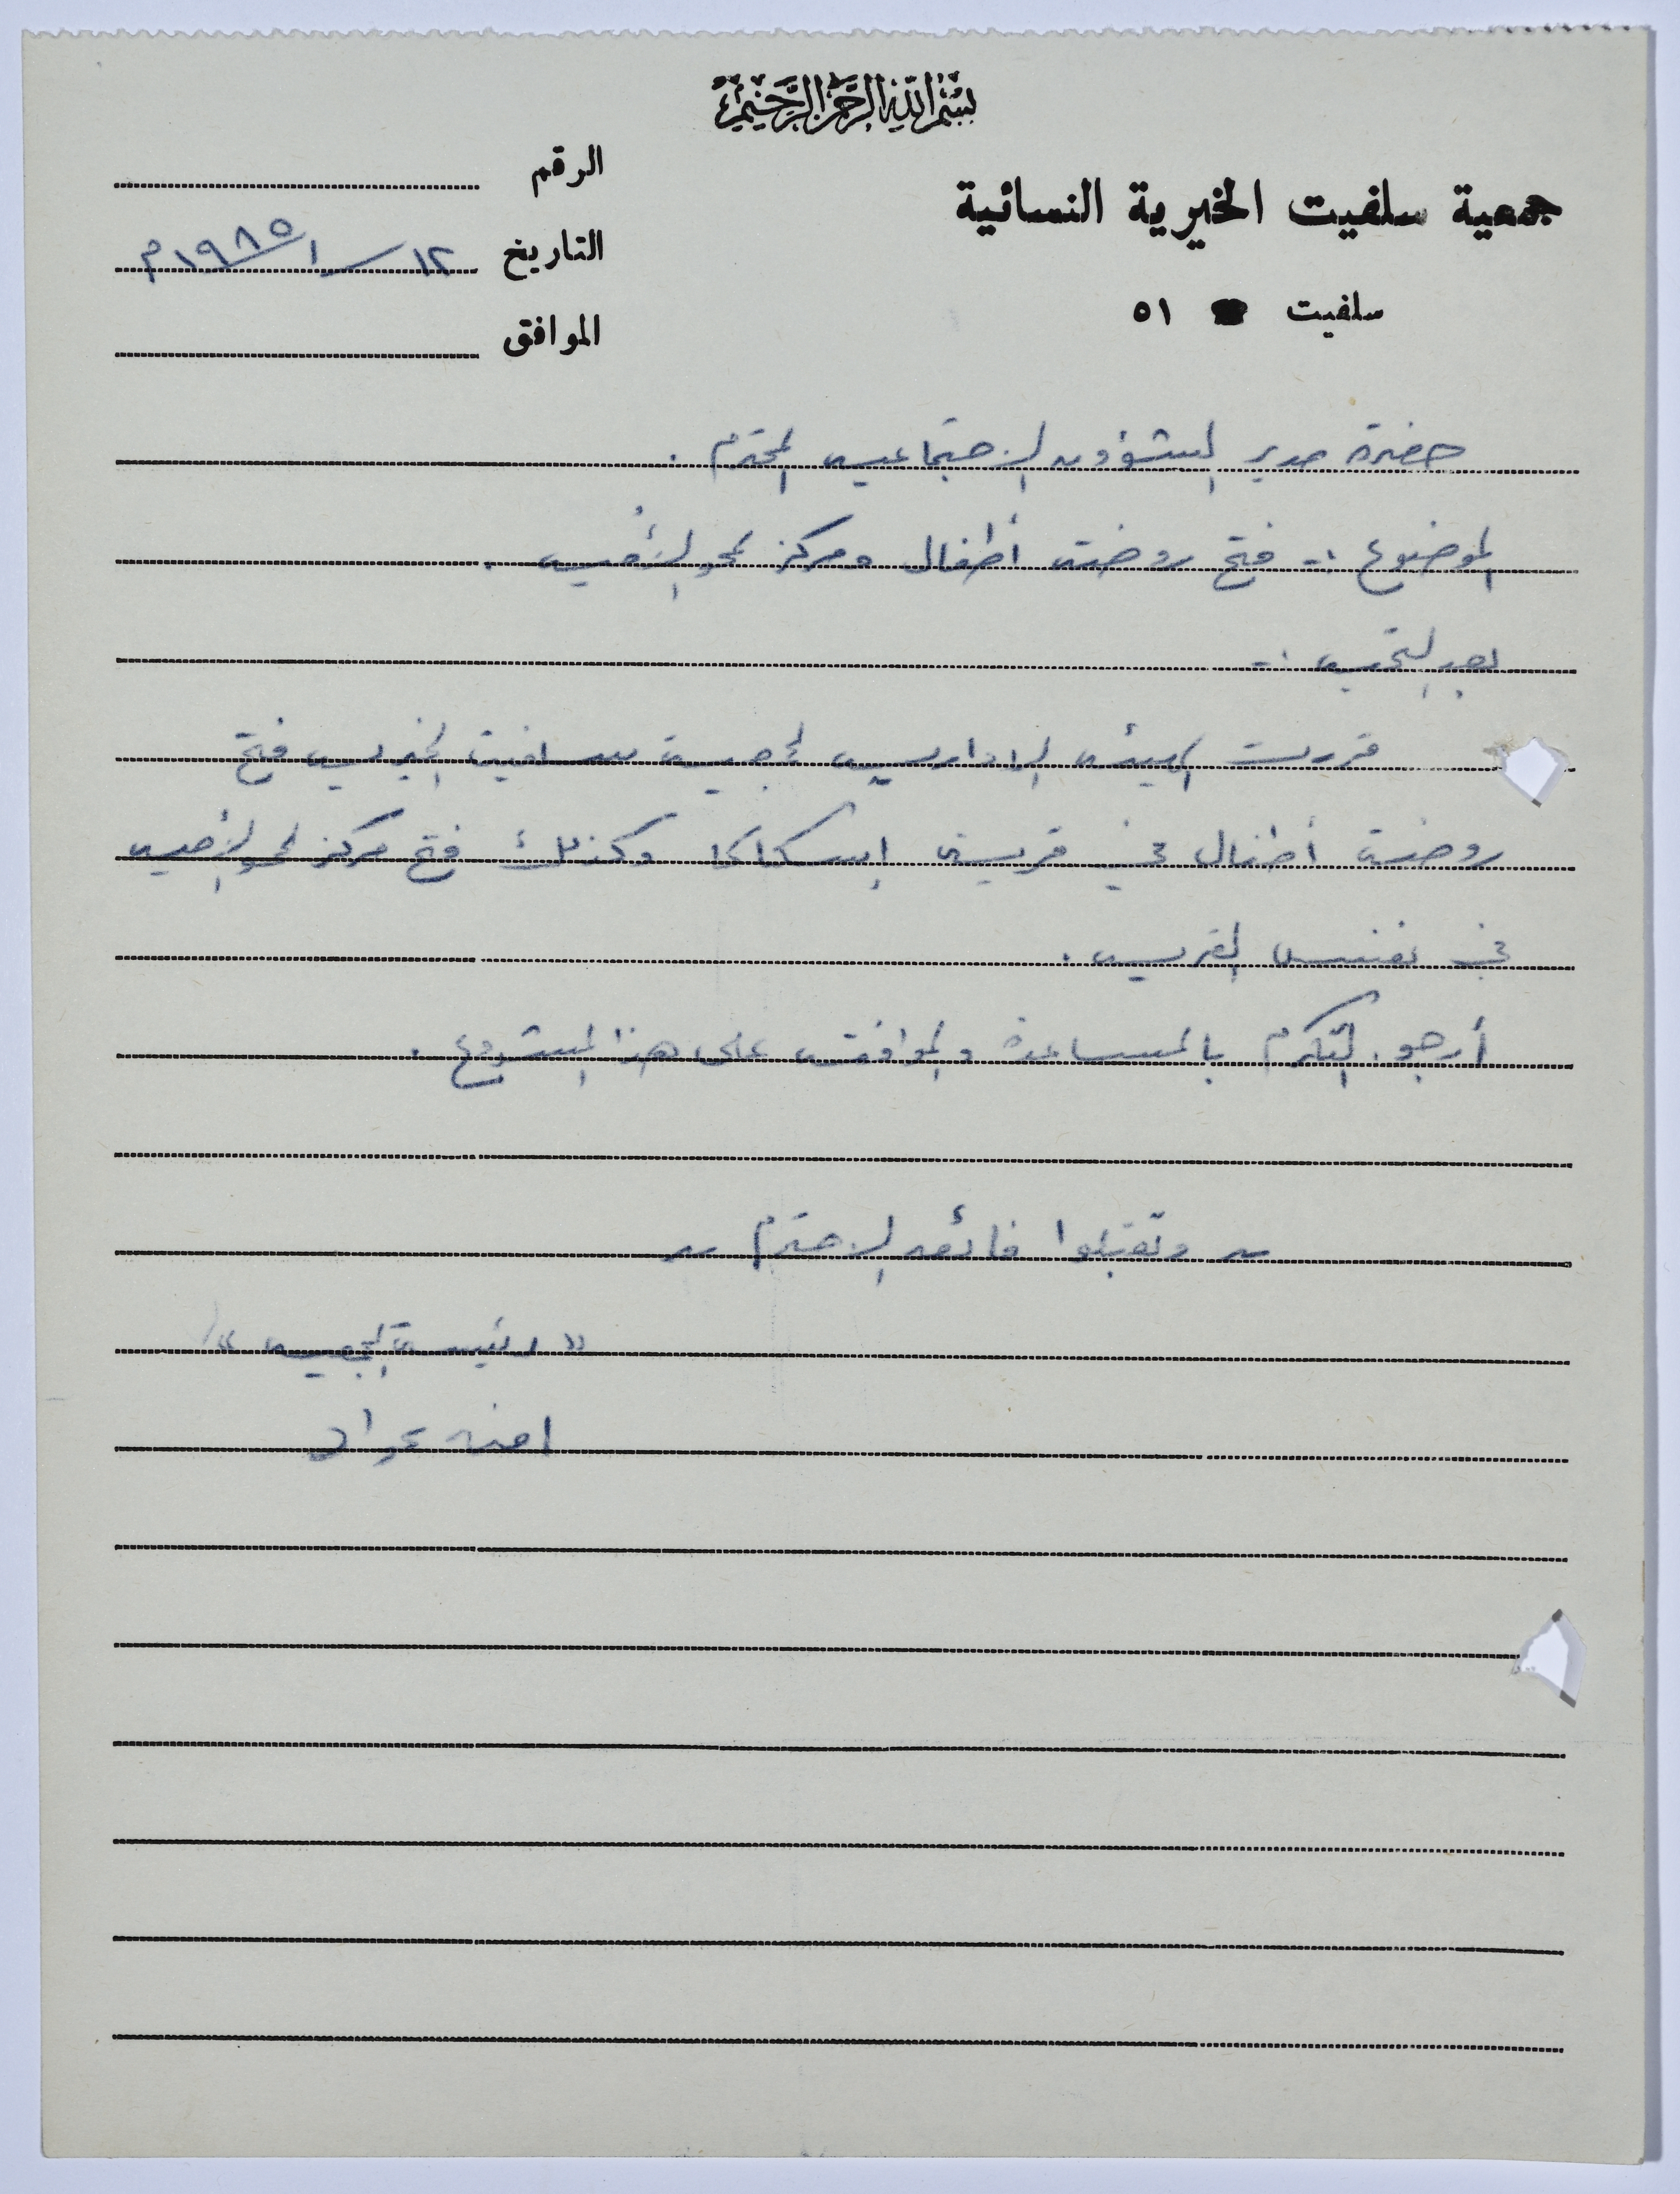 بسم الله الرحمن الرحيم
جمعية سلفيت الخيرية النسائية
سلفيت ٥١
الرقم
التاريخ ١٢/١/١٩٨٥م
الموافق
حضرة مدير الشؤون الاجتماعيه المحترم .
الموضوع :- فتح روضة أطفال ومركز لمحو الأميه .
بعد التحيه :-
قررت الهيئه الاداريه لجمعية سلفيت الخيريه فتح
روضة أطفال في قرية اسكاكا وكذلك فتح مركز لمحو الأميه
في نفس القريه .
أرجو التكرم بالمساعدة والموافقه على هذا المشروع .
وتقبلوا فائق الاحترم
" رئيسة الجمعيه "
امنه عواد